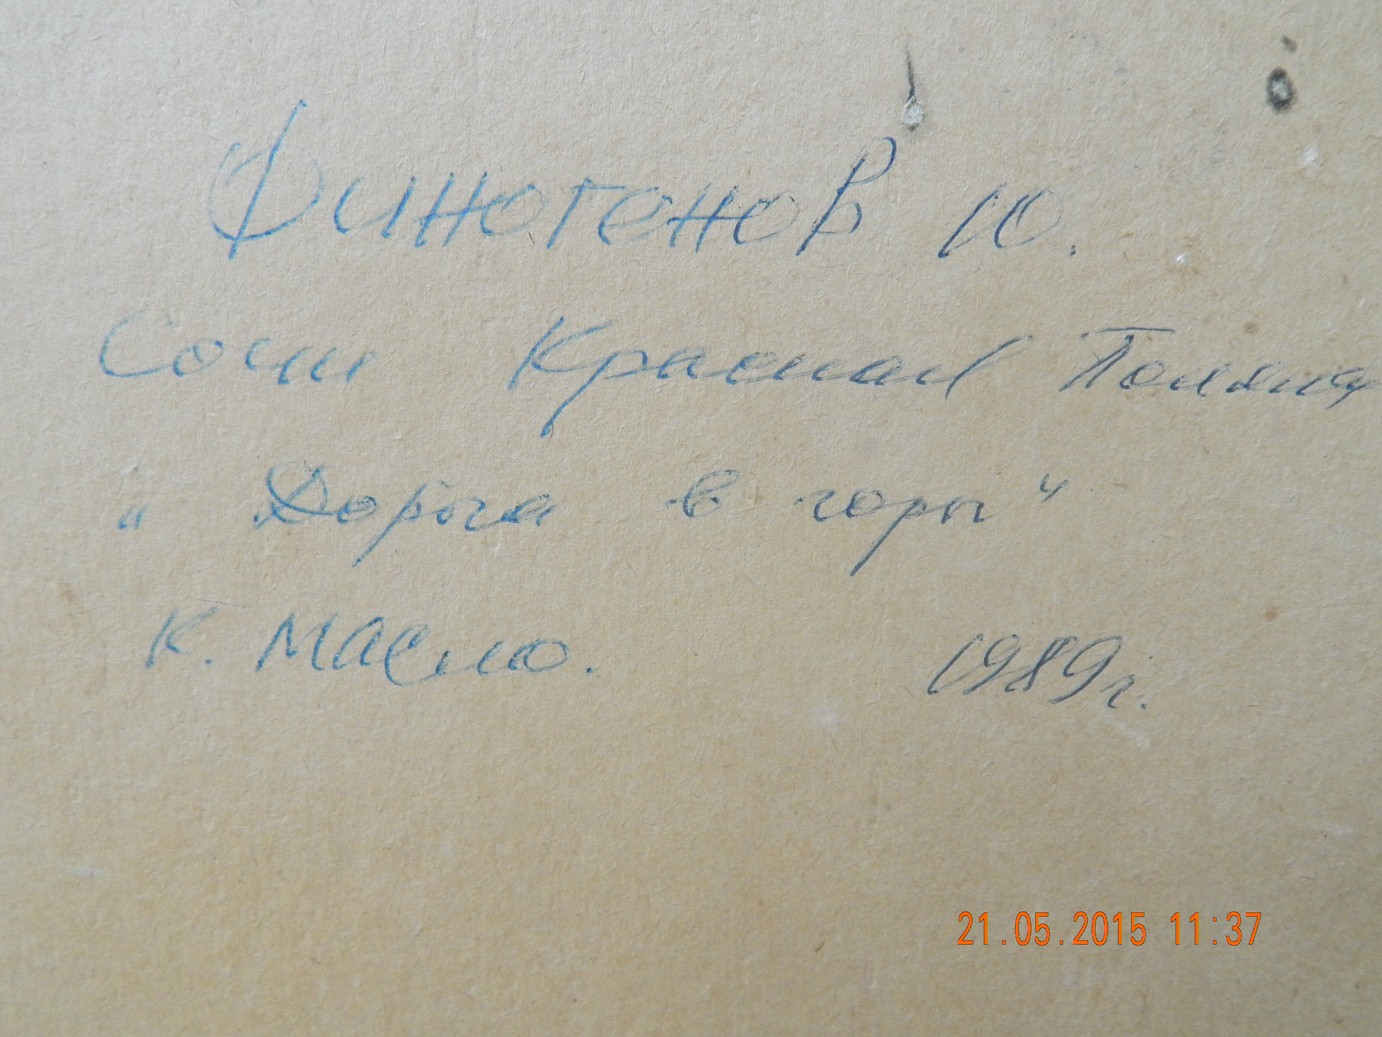 Финогенов Ю.
Сочи Красная Поляна
„ Дорога в горы"
К. Масло. 1989г.
21.05.2015 11:37